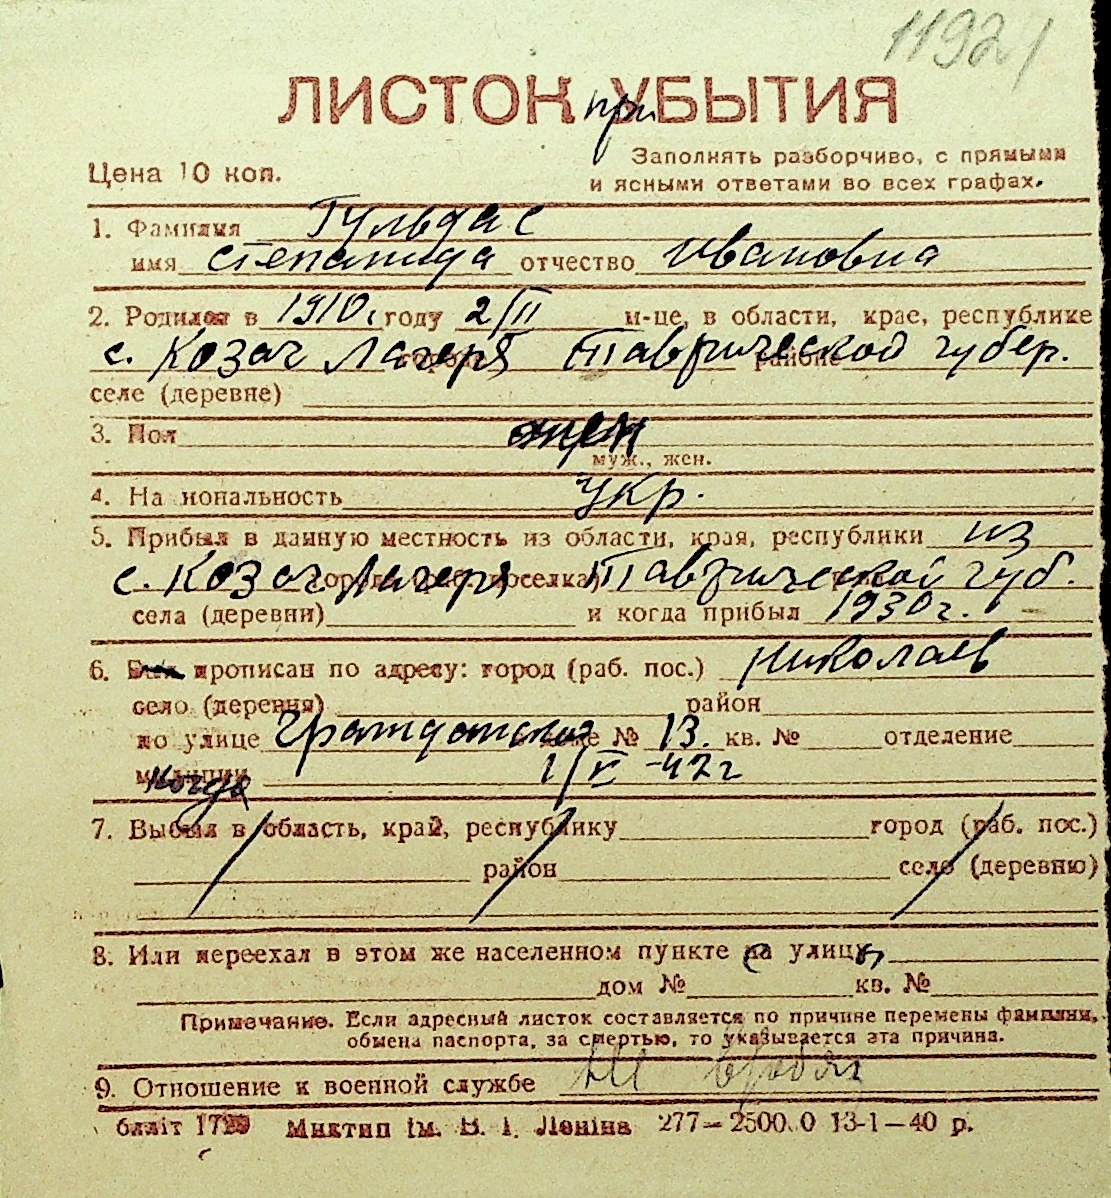 11921
ЛИСТОК при УБЫТИЯ
Цена 10 коп.
Заполнять разборчиво, с прямыми
и ясными ответами во всех графах.
1. Фамилия Гульдас
имя Степанида отчество Ивановна
2. Родился в 1910 г. году 2/II м-це, в области, крае, республике
с. Козач Лагеря городе Таврической губер. районе
селе (деревне)
3. Пол жен
муж., жен.
4. Национальность укр.
5. Прибыл в данную местность из области, края, республики из
с. Козач Лагеря Таврической губ.
села (деревни) и когда прибыл 1930 г.
6. Был прописан по адресу: город (раб. пос.) Николаев
село (деревня) район
по улице Гражданская доме № 13. кв. № отделение
милиции когда 1/V -42 г
7. Выбыл в область, край, республику город (раб. пос.)
район село (деревню)
8. Или переехал в этом же населенном пункте с улицы
дом № кв. №
Примечание. Если адресный листок составляется по причине перемены фамилии,
обмена паспорта, за смертью, то указывается эта причина.
9. Отношение к военной службе
бляїт Миктип ім. В. І. Леніна 277—2500.0 13-1—40 р.